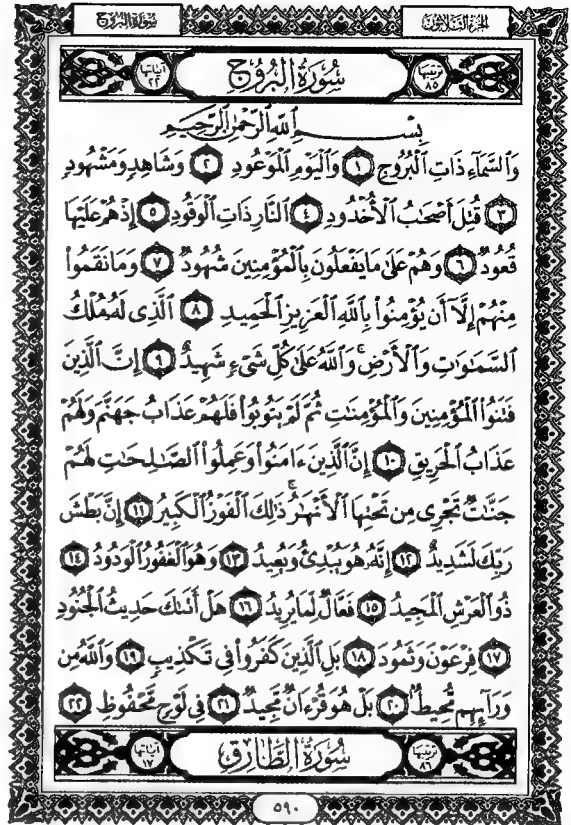 سورة البروج
الجزء الثلاثون
ترتيبها ٨٥
سُورَةُ الْبُرُوجِ
آياتها ٢٢
بِسْمِ اللَّهِ الرَّحْمَٰنِ الرَّحِيمِ
وَالسَّمَآءِ ذَاتِ الْبُرُوجِ ١ وَالْيَوْمِ الْمَوْعُودِ ٢ وَشَاهِدٍ وَمَشْهُودٍ
٣ قُتِلَ أَصْحَٰبُ الْأُخْدُودِ ٤ النَّارِ ذَاتِ الْوَقُودِ ٥ إِذْ هُمْ عَلَيْهَا
قُعُودٌ ٦ وَهُمْ عَلَىٰ مَا يَفْعَلُونَ بِالْمُؤْمِنِينَ شُهُودٌ ٧ وَمَا نَقَمُوا۟
مِنْهُمْ إِلَّآ أَن يُؤْمِنُوا۟ بِاللَّهِ الْعَزِيزِ الْحَمِيدِ ٨ الَّذِى لَهُۥ مُلْكُ
السَّمَٰوَٰتِ وَالْأَرْضِ ۚ وَاللَّهُ عَلَىٰ كُلِّ شَىْءٍ شَهِيدٌ ٩ إِنَّ الَّذِينَ
فَتَنُوا۟ الْمُؤْمِنِينَ وَالْمُؤْمِنَٰتِ ثُمَّ لَمْ يَتُوبُوا۟ فَلَهُمْ عَذَابُ جَهَنَّمَ وَلَهُمْ
عَذَابُ الْحَرِيقِ ١٠ إِنَّ الَّذِينَ ءَامَنُوا۟ وَعَمِلُوا۟ الصَّٰلِحَٰتِ لَهُمْ
جَنَّٰتٌ تَجْرِى مِن تَحْتِهَا الْأَنْهَٰرُ ۚ ذَٰلِكَ الْفَوْزُ الْكَبِيرُ ١١ إِنَّ بَطْشَ
رَبِّكَ لَشَدِيدٌ ١٢ إِنَّهُۥ هُوَ يُبْدِئُ وَيُعِيدُ ١٣ وَهُوَ الْغَفُورُ الْوَدُودُ ١٤
ذُو الْعَرْشِ الْمَجِيدُ ١٥ فَعَّالٌ لِّمَا يُرِيدُ ١٦ هَلْ أَتَىٰكَ حَدِيثُ الْجُنُودِ
١٧ فِرْعَوْنَ وَثَمُودَ ١٨ بَلِ الَّذِينَ كَفَرُوا۟ فِى تَكْذِيبٍ ١٩ وَاللَّهُ مِن
وَرَآئِهِم مُّحِيطٌ ٢٠ بَلْ هُوَ قُرْءَانٌ مَّجِيدٌ ٢١ فِى لَوْحٍ مَّحْفُوظٍ ٢٢
ترتيبها ٨٦
سُورَةُ الطَّارِقِ
آياتها ١٧
٥٩٠